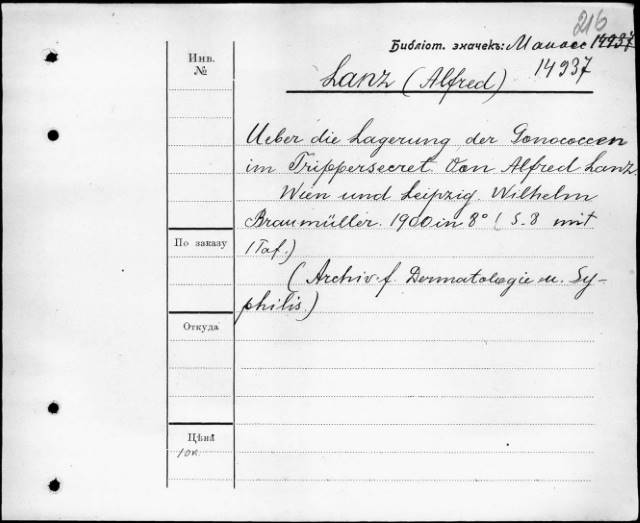 216
Библіот. значекъ: Манасс 14937
14937
Инв.
№
Lanz (Alfred)
Ueber die Lagerung der Gonococcen
im Trippersecret. Von Alfred Lanz.
Wien und Leipzig. Wilhelm
Braumüller. 1900 in 8° (S. 8 mit
1 Taf.)
(Archiv f. Dermatologie u. Sy-
philis.)
По заказу
Откуда
Цѣна
10к.